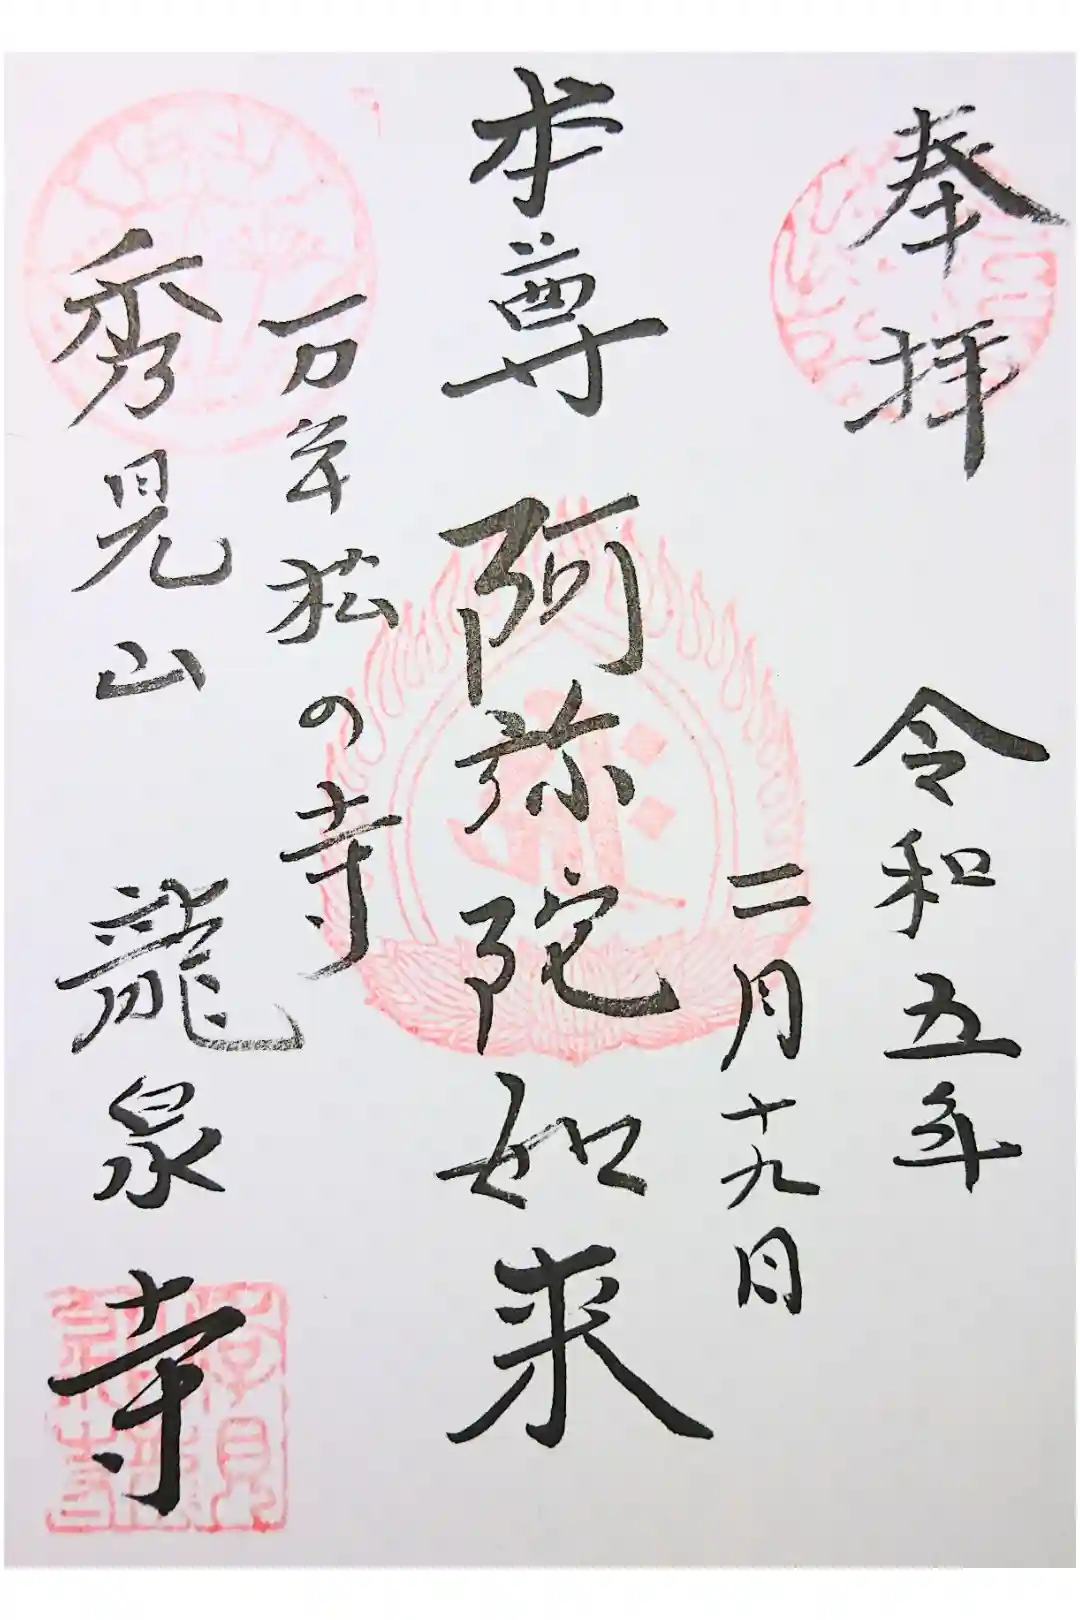 奉拝
令和五年
二月十九日
本尊 阿弥陀如来
万年松の寺
秀晃山 龍泉寺